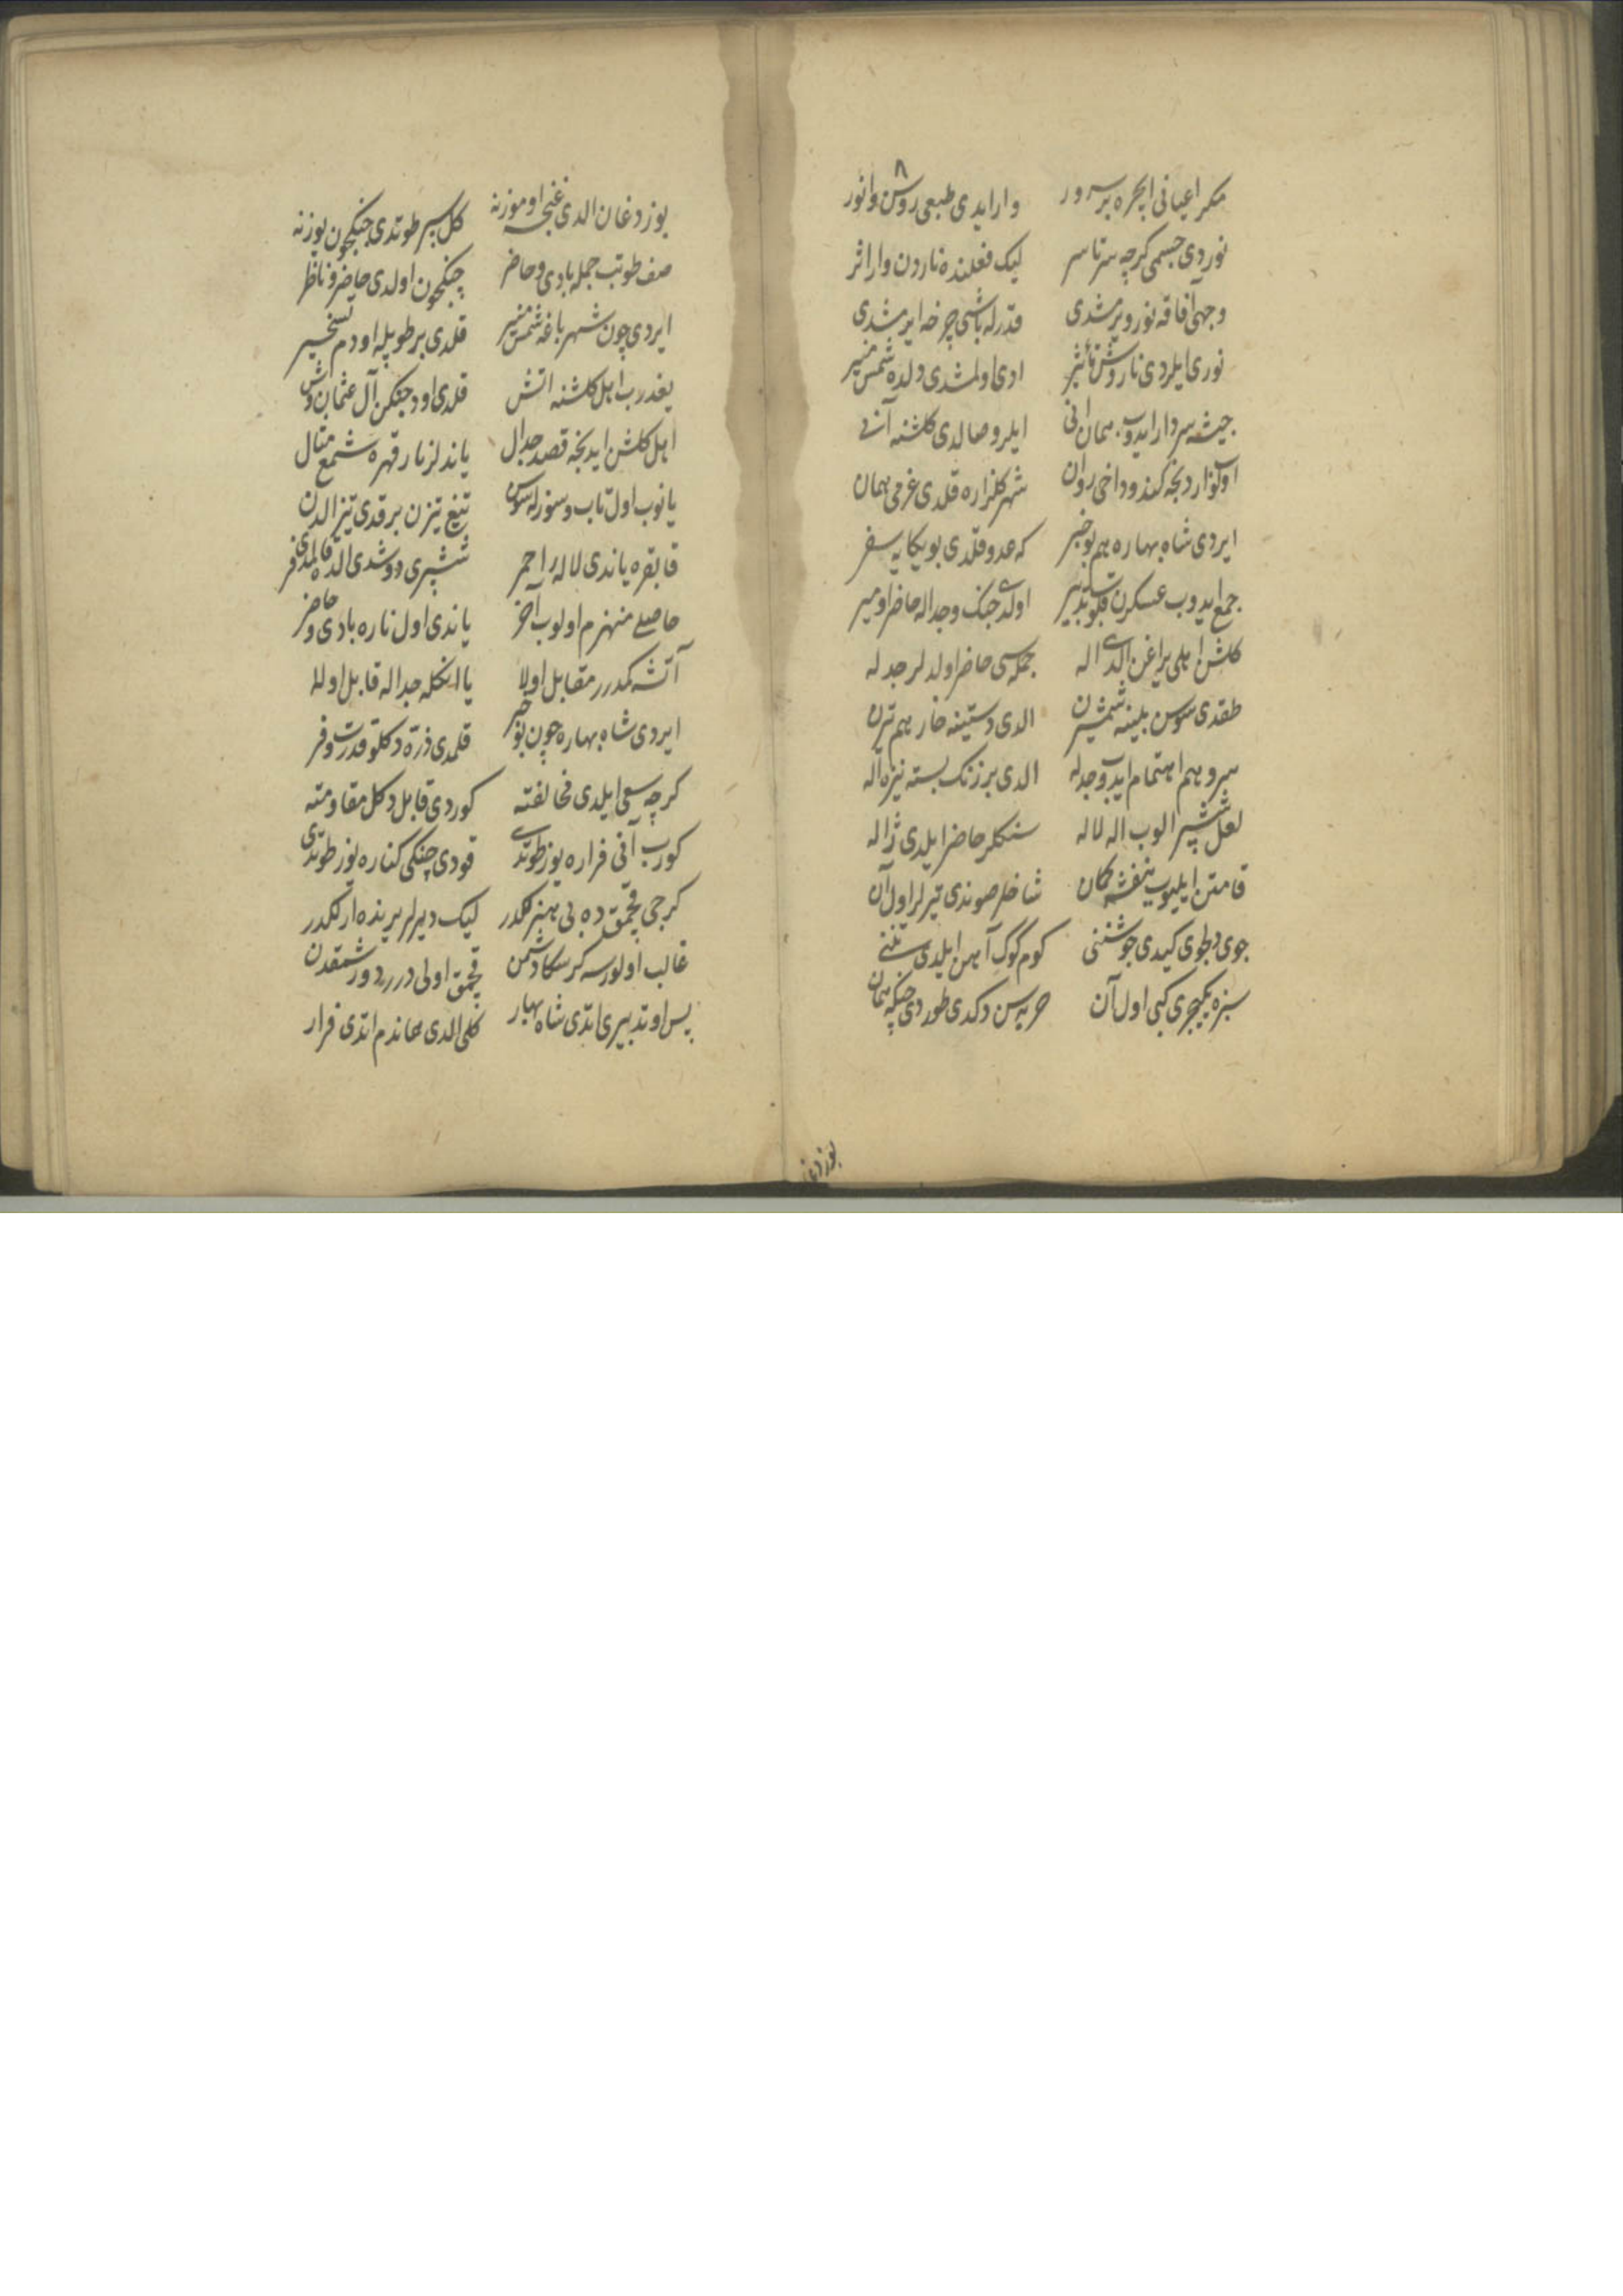 مكر اعيانى ايچره بر سرور وار ايدى طبعى روشن و انور
نوردى جسمى كرچه سرتاسر ليك فعلنده ناردن وار اثر
وجهى آفاقه نور ويرمشدى قدرله باشى چرخه ايرمشدى
نورى ايلردى نار وش تأثير ادى اولمشدى دلده شمس منير
جيشه سردار ايدوب همان انى ايلرو صالدى كلشنه آنى
اوكلو آردنجه كندو داخى روان شهر كلزاره قلدى عزمى همان
ايردى شاه بهاره هم بو خبر كه عدو قلدى بو يكايه سفر
جمع ايدوب عسكرن قلوب تدبير اولدى جنك و جداله حاضر او مير
كلشن اهلى يراغن الدى اله جمله سى حاضر اولديلر جدله
طقدى سوسن بيلينه شمشيرن الدى دستينه خار هم تيرن
سرو هم اهتمام ايدوب جدله الدى بر زنك بسته نيزه اله
لعل ششپر الوب اله لاله سنكلر حاضر ايلدى ژاله
قامتن ايليوب بنفشه كمان شاخلر صوندى تيرلر اول آن
جوى دخى كيدى جوشننى كوم كوك آهن ايلدى تننى
سبزه يكيچرى كبى اول آن حربه سن دكدى طوردى جنكه همان
بوز دغان
بوز دغان الدى غنچه اوموزنه كل سپر طوتدى جنكيچون يوزنه
صف طوتب جمله بادى و حاضر جنكيچون اولدى حاضر و ناظر
ايردى چون شهر باغه شمس منير قلدى بر طوپله اودم تسخير
يغدرب اهل كلشنه اتش قلدى اود جنكن آل عثمان وش
اهل كلشن ايديجه قصد جدال ياندلر نار قهره شمع مثال
يانوب اول تاب و سوزله سوسن تيغ تيزن برقدى تيز الدن
قابقره ياندى لاله احمر ششپرى دوشدى الده قالمدى فر
حاصلى منهزم اولوب آخر ياندى اول ناره بادى و حاضر
آتشه كمدرر مقابل اولا يا انكله جداله قابل اولا
ايردى شاه بهاره چون بو خبر قلمدى ذره دكلو قدرت و فر
كرچه سعى ايلدى مخالفته كوردى قابل دكل مقاومته
كورب آنى فراره يوز طوتدى قودى جنكى كناره يوز طوتدى
كرچى قچمق ده بى هنرلكدر ليك ديرلر يرنده ارلكدر
غالب اولورسه كر سكا دشمن قچمق اولى درر دورشمقدن
پس او تدبيرى ايتدى شاه بهار كلى الدى هماندم اتدى فرار